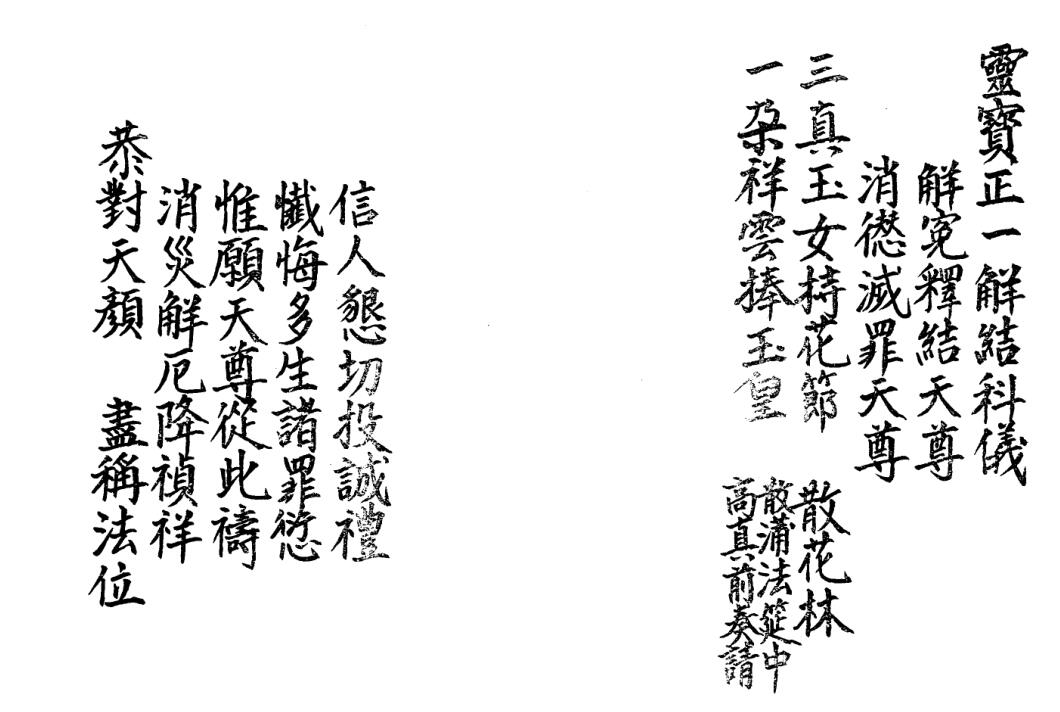 靈寶正一解結科儀
解寃釋結天尊
消愆滅罪天尊
三真玉女持花節　散花林
一朶祥雲捧玉皇　散蒲法筵中
高真前奏請
信人懇切投誠禮
懺悔多生諸罪愆
惟願天尊從此禱
消災解厄降禎祥
恭對天顏　盡稱法位